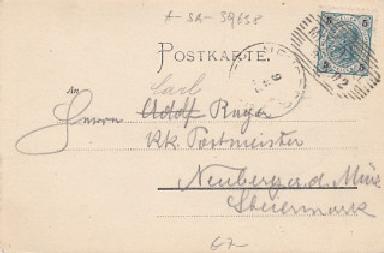 A-SA-39638
POSTKARTE.
Carl
An
Herrn Adolf Ruger
kk. Postmeister
Neuberg a. d. Mürz
Steiermark
5 5
5 5